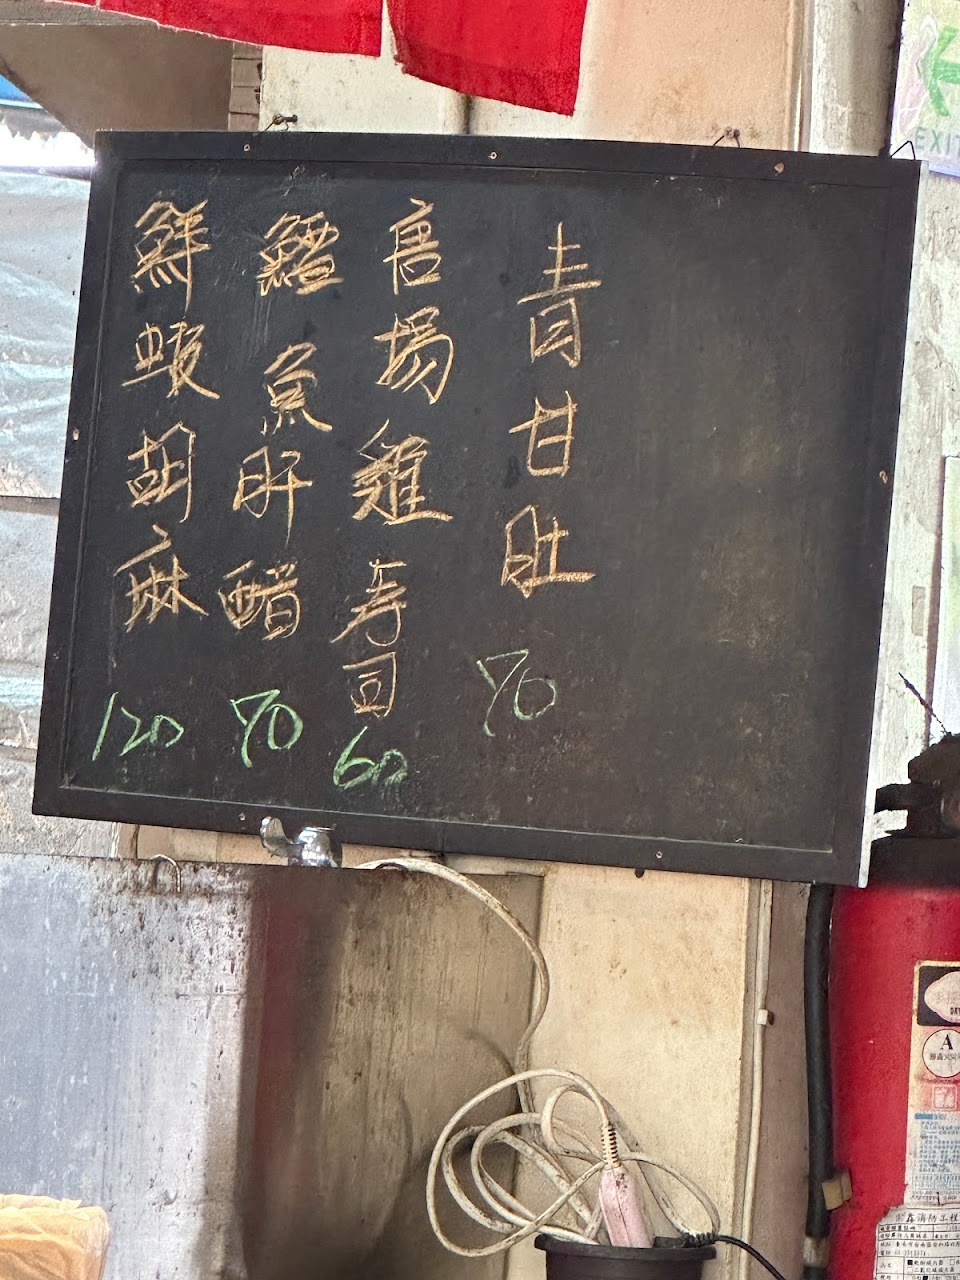 青甘肚 70
唐揚雞寿司 60
鱈魚肝醋 70
鮮蝦胡麻 120
A
消防工程